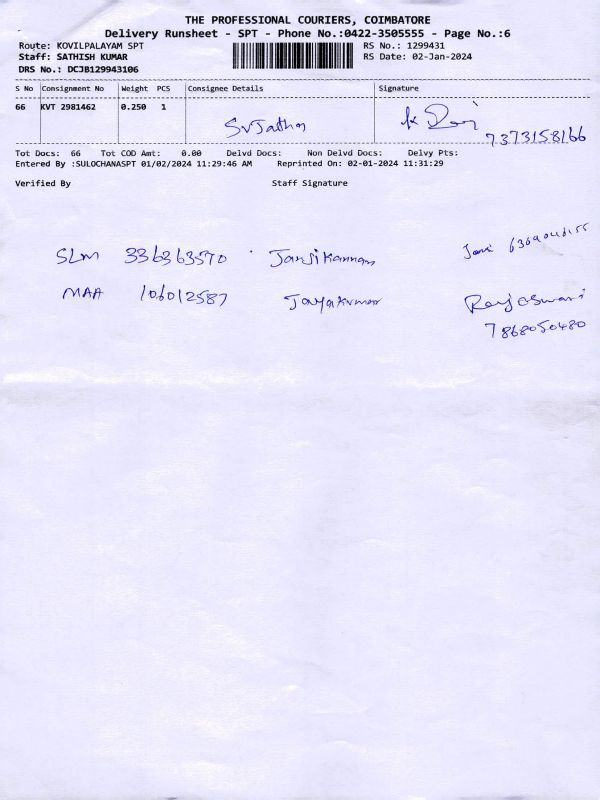 THE PROFESSIONAL COURIERS, COIMBATORE
Delivery Runsheet - SPT - Phone No.:0422-3505555 - Page No.:6
Route: KOVILPALAYAM SPT RS No.: 1299431
Staff: SATHISH KUMAR RS Date: 02-Jan-2024
DRS No.: DCJB129943106
S No Consignment No Weight PCS Consignee Details Signature
66 KVT 2981462 0.250 1
7373158166
Tot Docs: 66 Tot COD Amt: 0.00 Delvd Docs: Non Delvd Docs: Delvy Pts:
Entered By :SULOCHANASPT 01/02/2024 11:29:46 AM Reprinted On: 02-01-2024 11:31:29
Verified By Staff Signature
SLM 336363570 JansiKannan
MAA 106012587 Jayakumar
7868050480